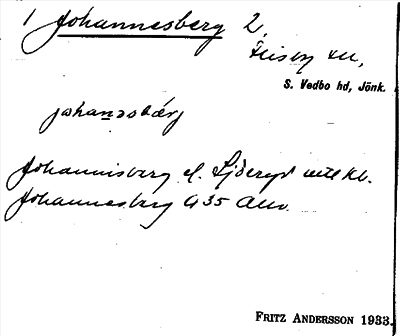 1 Johannesberg 2,
Flisby sn,
S. Vedbo hd, Jönk.
johanəsbärj
Johannisberg el. Sjöeryd
Johannesberg G 35 Allm.
FRITZ ANDERSSON 1933.